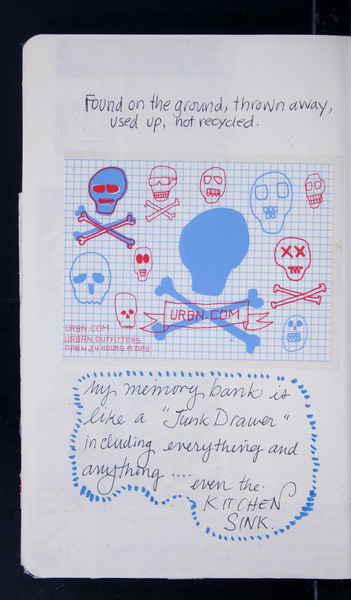 Found on the ground, thrown away,
used up, not recycled.
URBN.COM
URBN.COM
URBAN OUTFITTERS
OPEN 24 HOURS A DAY
My memory bank is
like a "Junk Drawer"
including everything and
anything ....
even the.
KITCHEN
SINK.